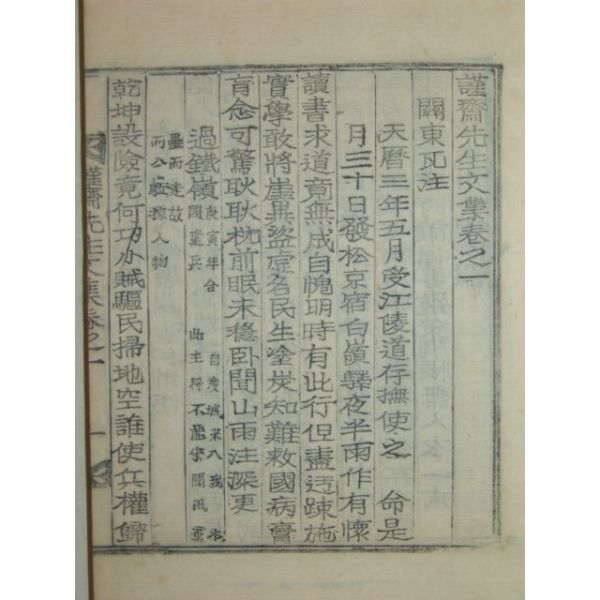 謹齋先生文集卷之一
關東瓦注
天曆三年五月受江陵道存撫使之 命是
月三十日發松京宿白嶺驛夜半雨作有懷
讀書求道竟無成自愧明時有此行但盡迃踈施
實學敢將崖異盜虛名民生塗炭知難救國病膏
肓念可驚耿耿枕前眠未穩臥聞山雨注深更
過鐵嶺
庚寅年合
國重兵
由主將不能守關風
自登城來入我
而公 人物
乾坤設險竟何功小賊驅民掃地空誰使兵權歸
謹齋先生文集卷之一 一